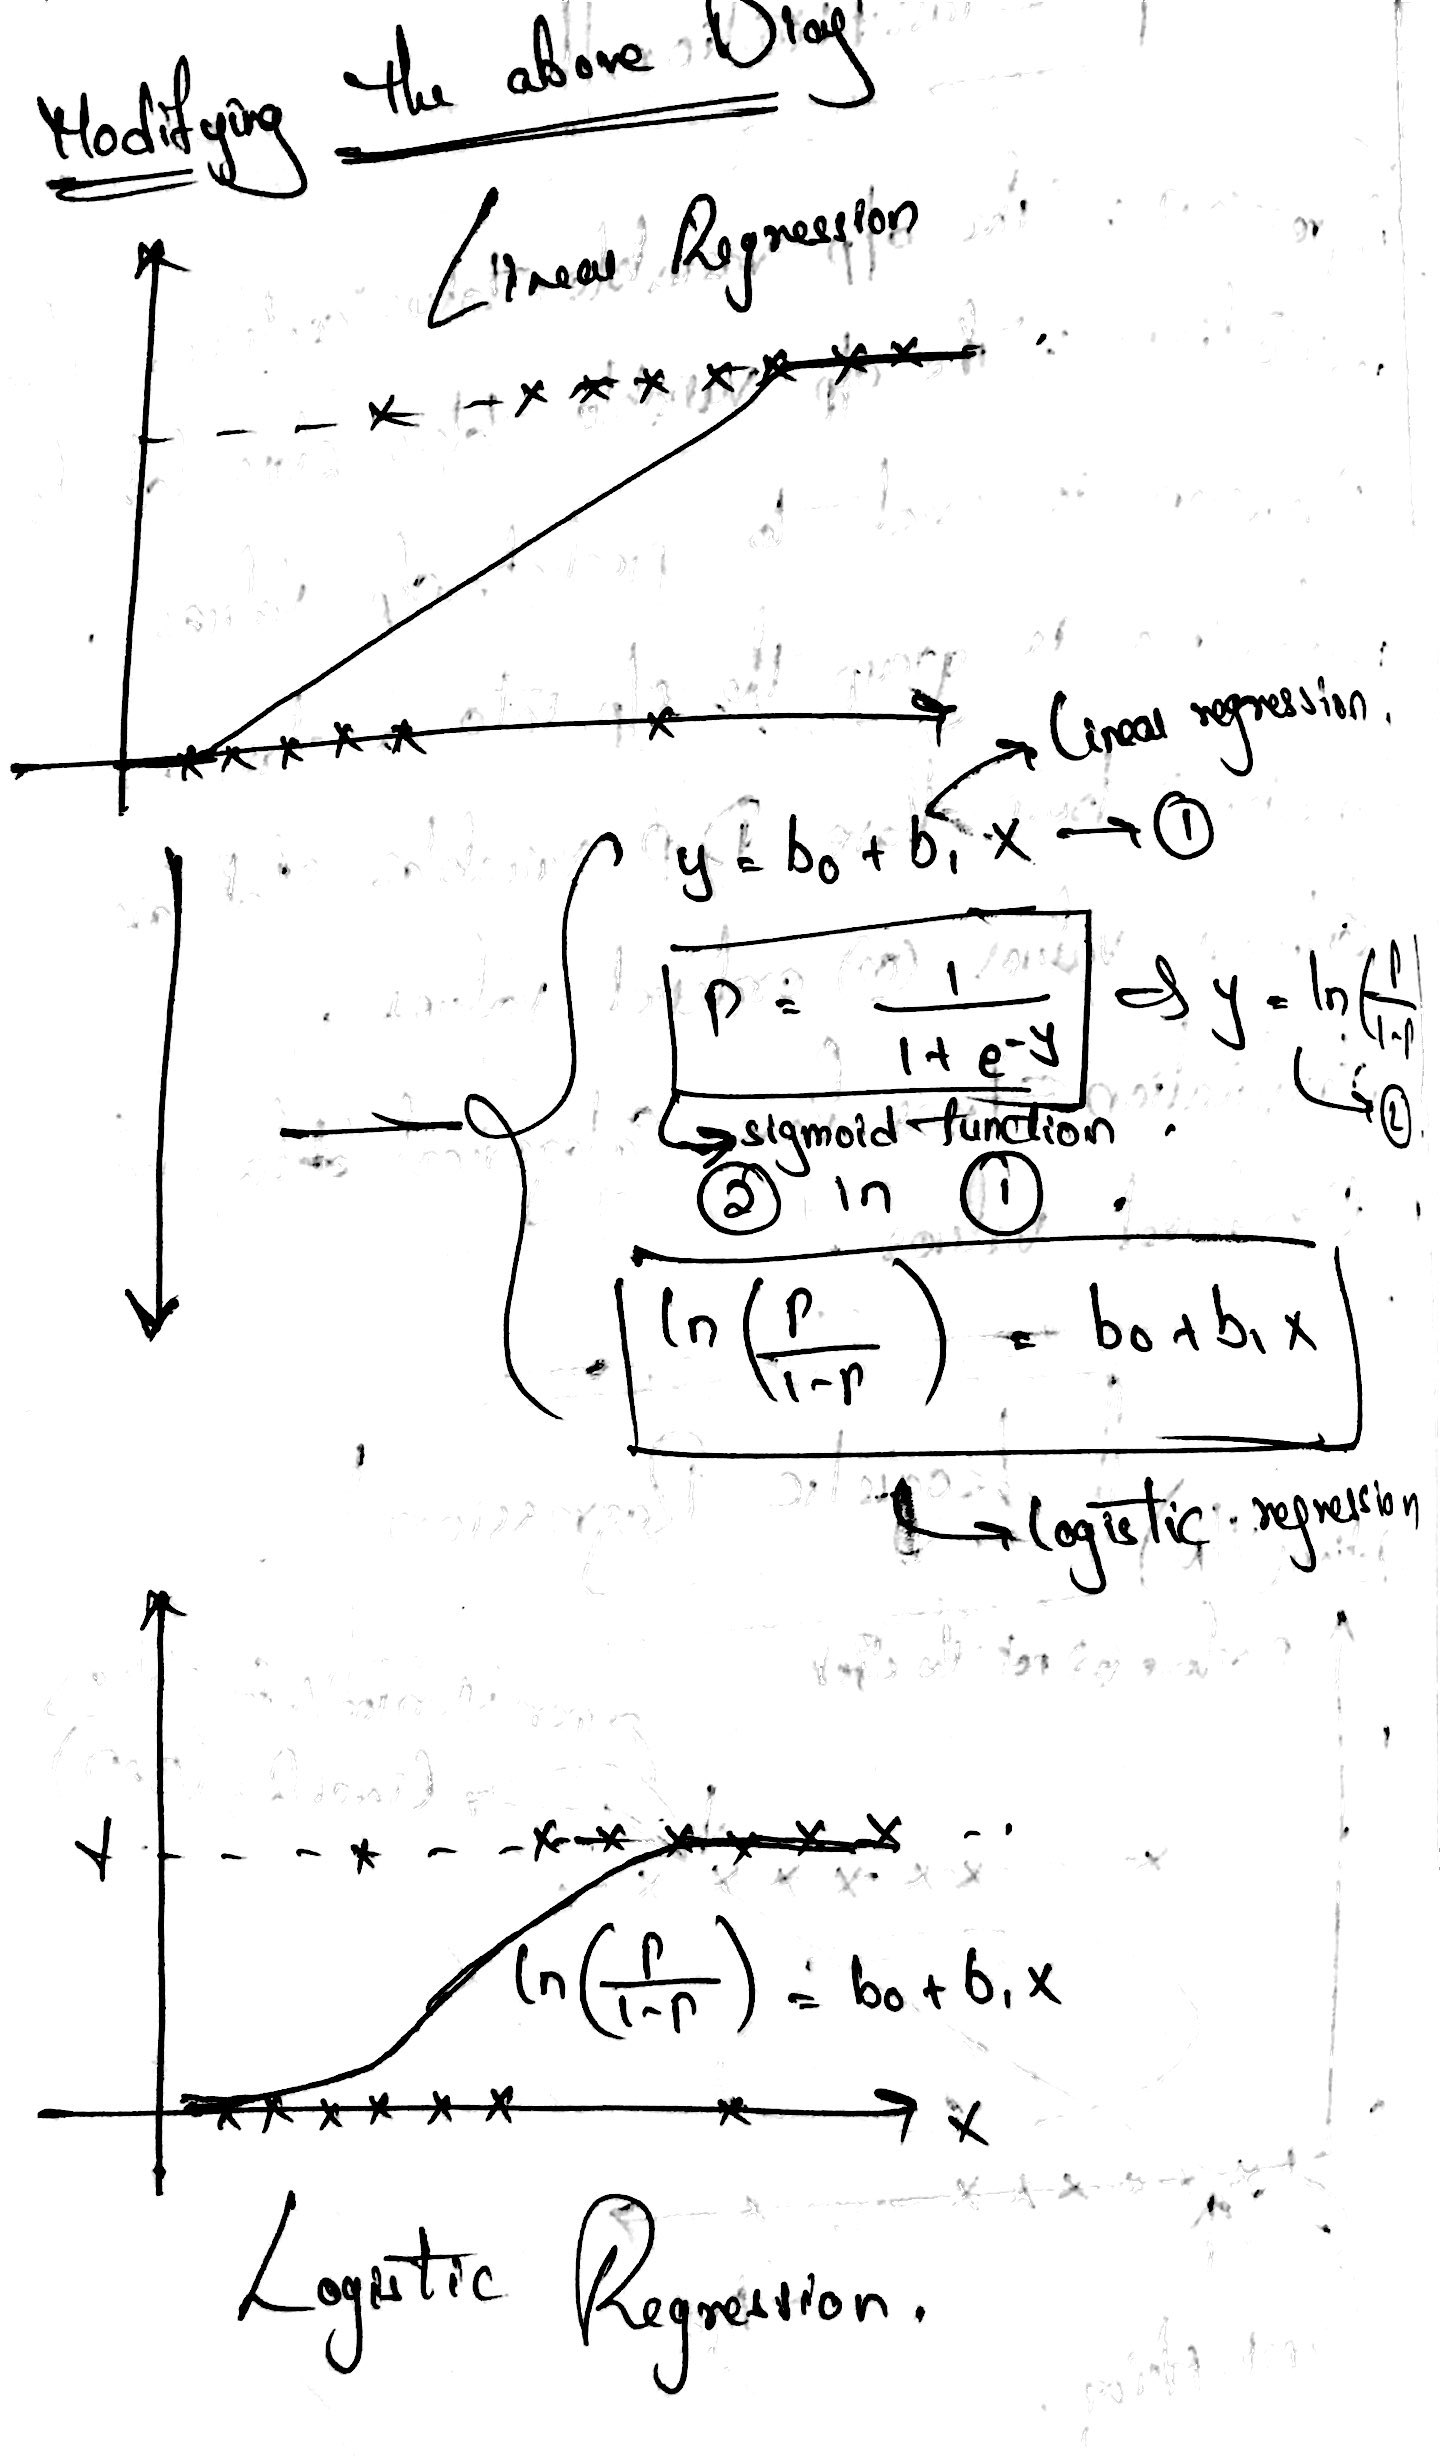 Modifying the above Diag
Linear Regression
Linear regression.
y = b₀ + b₁ x → ①
P = 1 / (1 + e^-y) ⇒ y = ln(P / 1-P)
②
sigmoid function.
② in ①
ln(P / 1-P) = b₀ + b₁ x
Logistic regression
y
ln(P / 1-P) = b₀ + b₁ x
x
Logistic Regression.